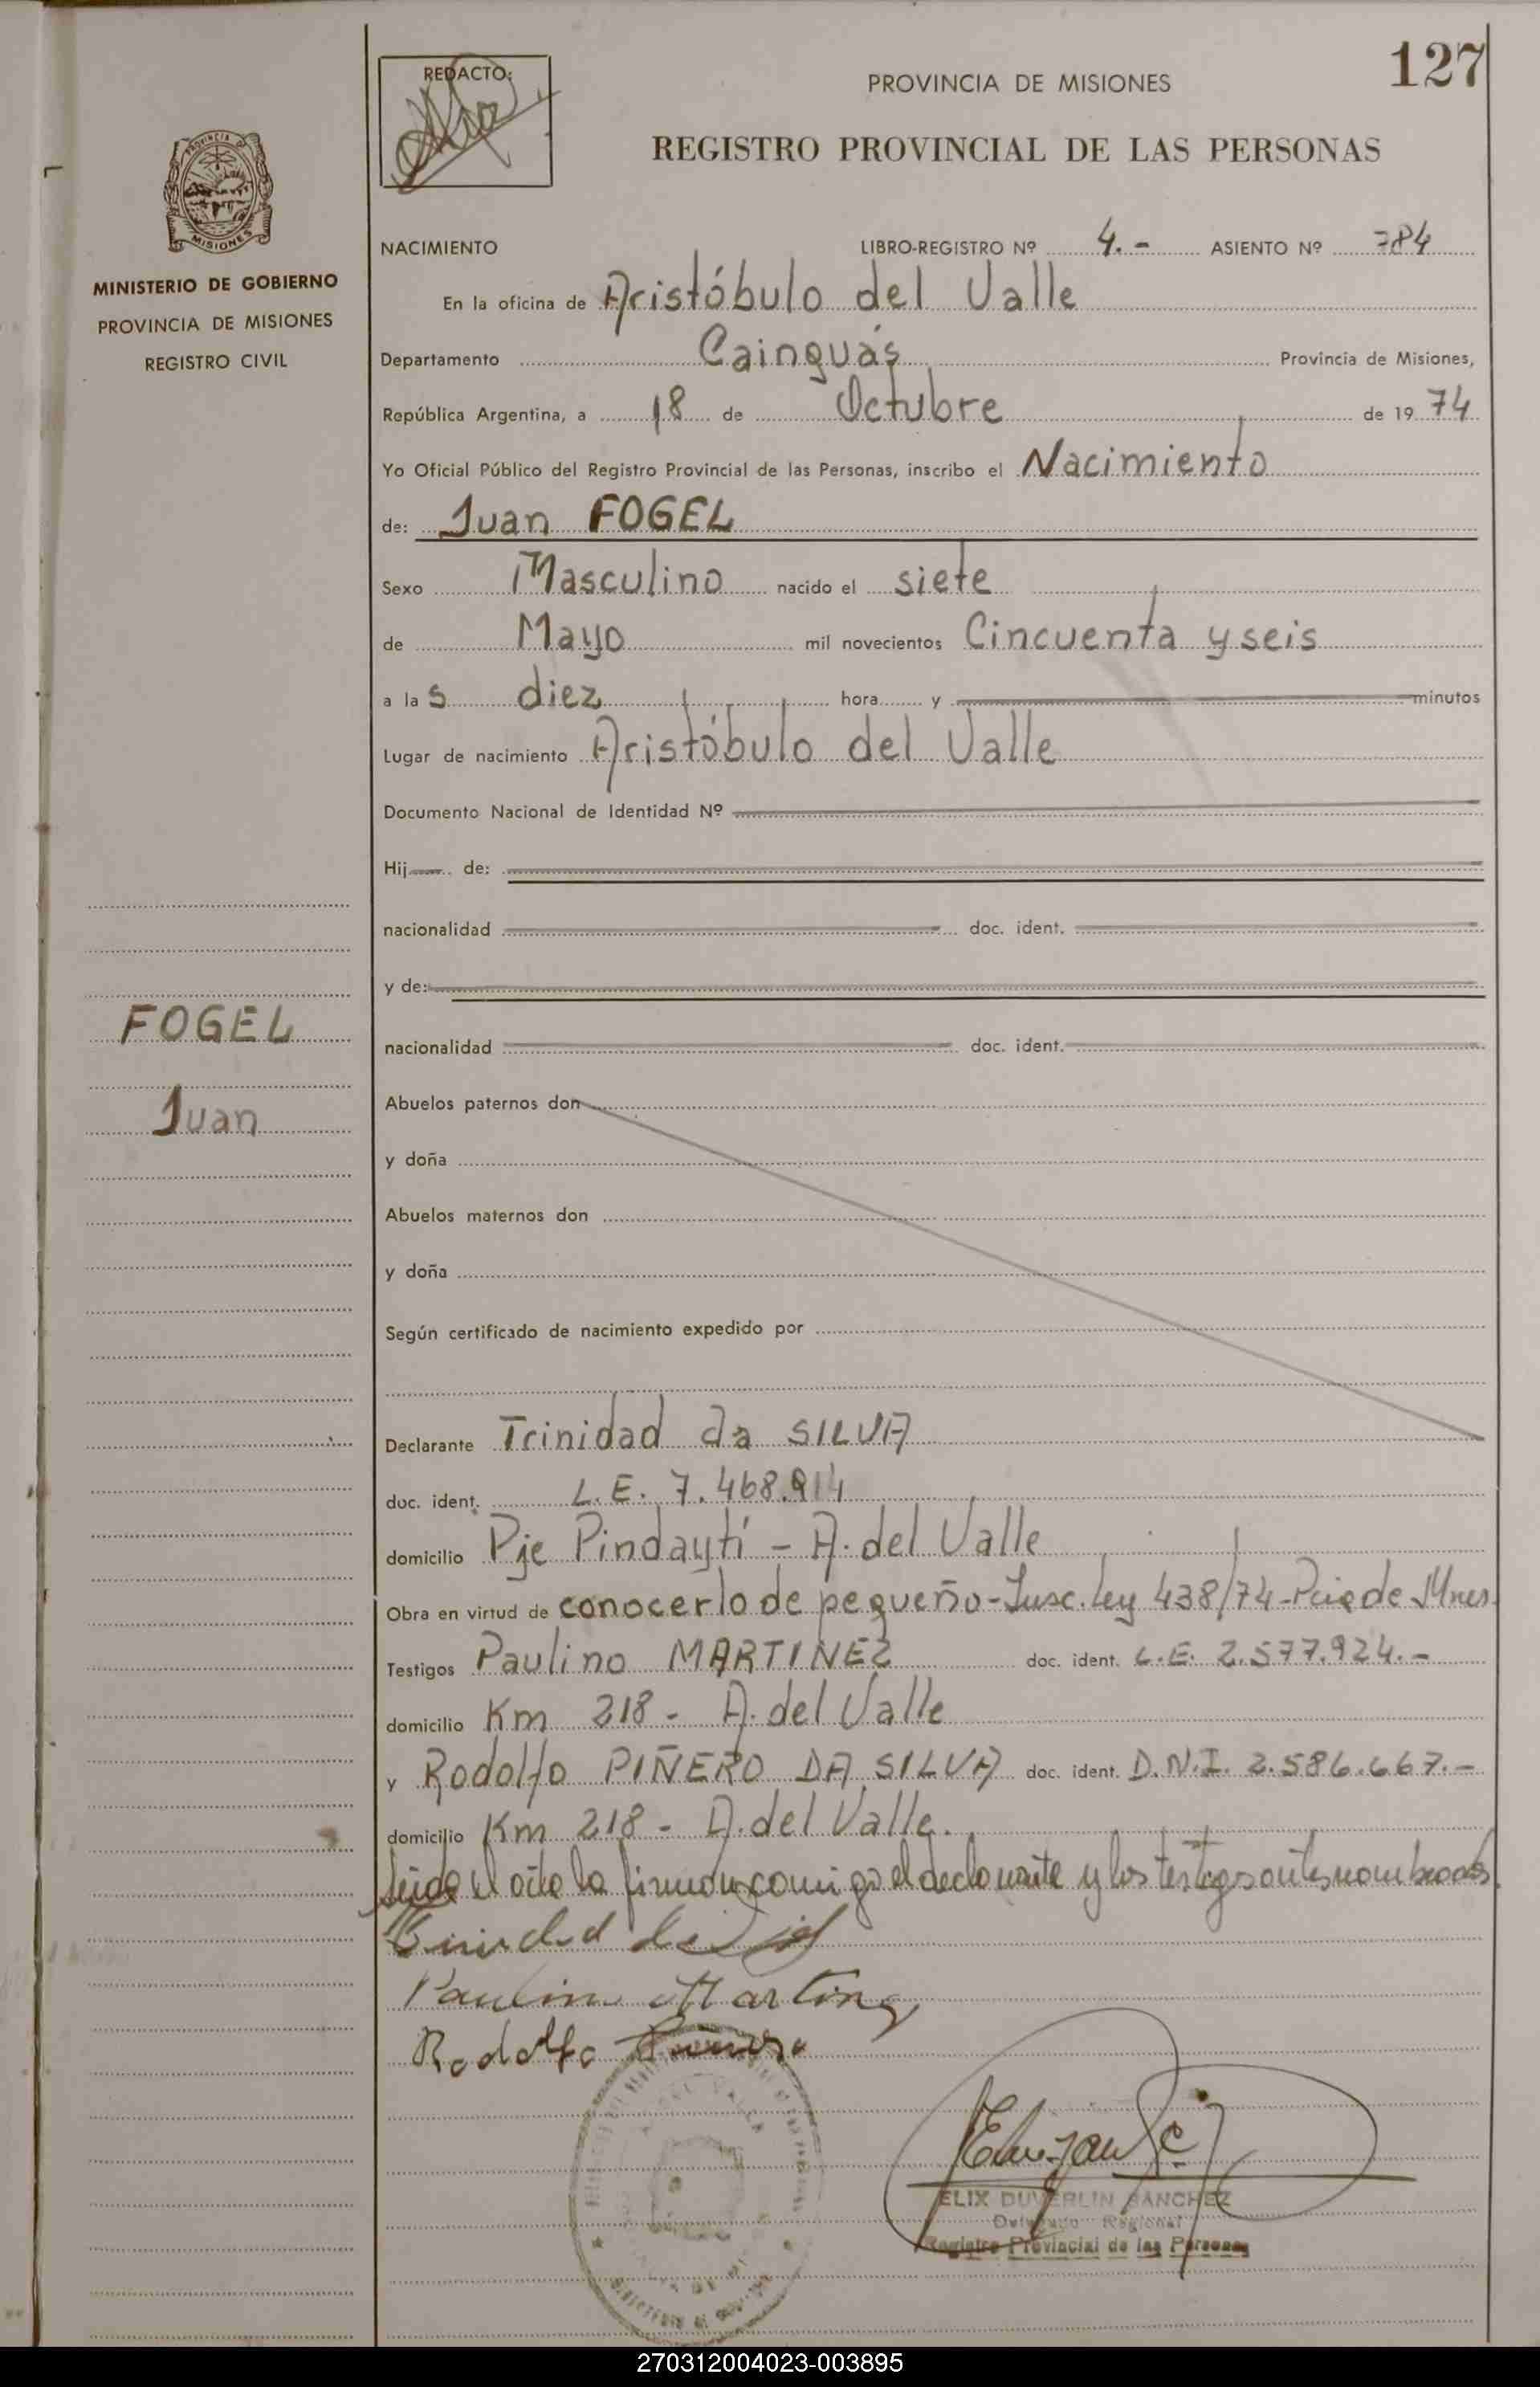 127
REDACTO:
PROVINCIA DE MISIONES
REGISTRO PROVINCIAL DE LAS PERSONAS
PROVINCIA DE
MISIONES
MINISTERIO DE GOBIERNO
PROVINCIA DE MISIONES
REGISTRO CIVIL
NACIMIENTO LIBRO-REGISTRO Nº 4.- ASIENTO Nº 784
En la oficina de Aristóbulo del Valle
Departamento Cainguás Provincia de Misiones,
República Argentina, a 18 de Octubre de 19 74
Yo Oficial Público del Registro Provincial de las Personas, inscribo el Nacimiento
de: Juan FOGEL
Sexo Masculino nacido el siete
de Mayo mil novecientos Cincuenta y seis
a la s diez hora y minutos
Lugar de nacimiento Aristóbulo del Valle
Documento Nacional de Identidad Nº
Hij de:
nacionalidad doc. ident.
y de:
FOGEL
nacionalidad doc. ident.
Juan
Abuelos paternos don
y doña
Abuelos maternos don
y doña
Según certificado de nacimiento expedido por
Declarante Trinidad da SILVA
doc. ident. L.E. 7.468.914
domicilio Pje Pindaytí - A. del Valle
Obra en virtud de conocerlo de pequeño - Insc. Ley 438/74 - Pcia de Mnes.
Testigos Paulino MARTINEZ doc. ident. L.E. 2.577.924.-
domicilio Km 218 - A. del Valle
y Rodolfo PIÑERO DA SILVA doc. ident. D.N.I. 2.586.667.-
domicilio Km 218 - A. del Valle.
Leida el acta la firman conmigo el declarante y los testigos antes nombrados.
Paulino Martinez
Rodolfo
ELIX DUVERLIN SANCHEZ
Delegado Regional
Registro Provincial de las Personas
270312004023-003895